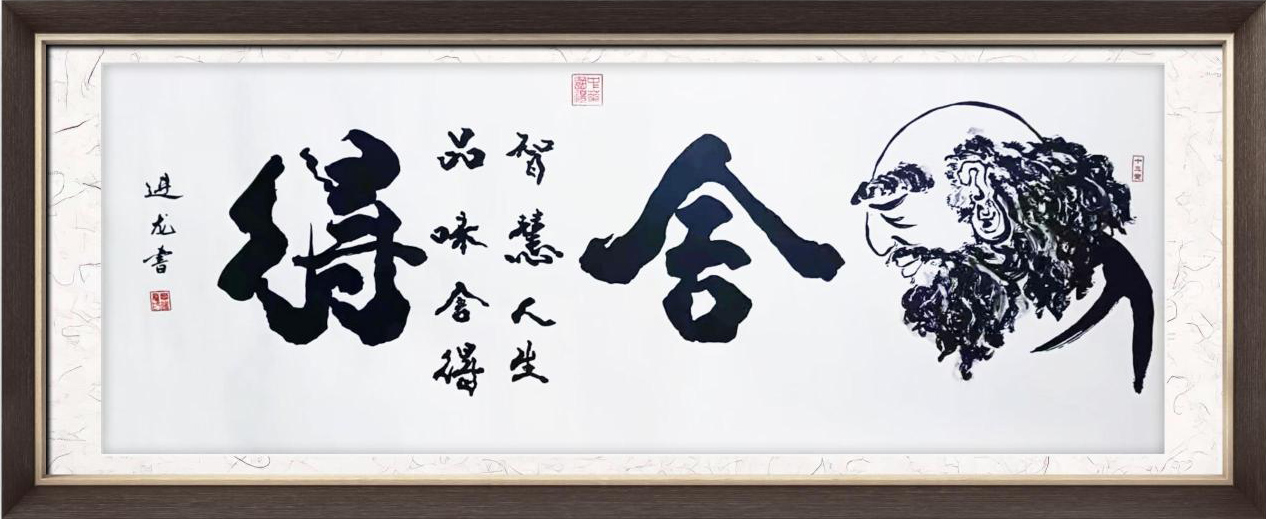 舍
智慧人生
品味舍得
得
進龙書